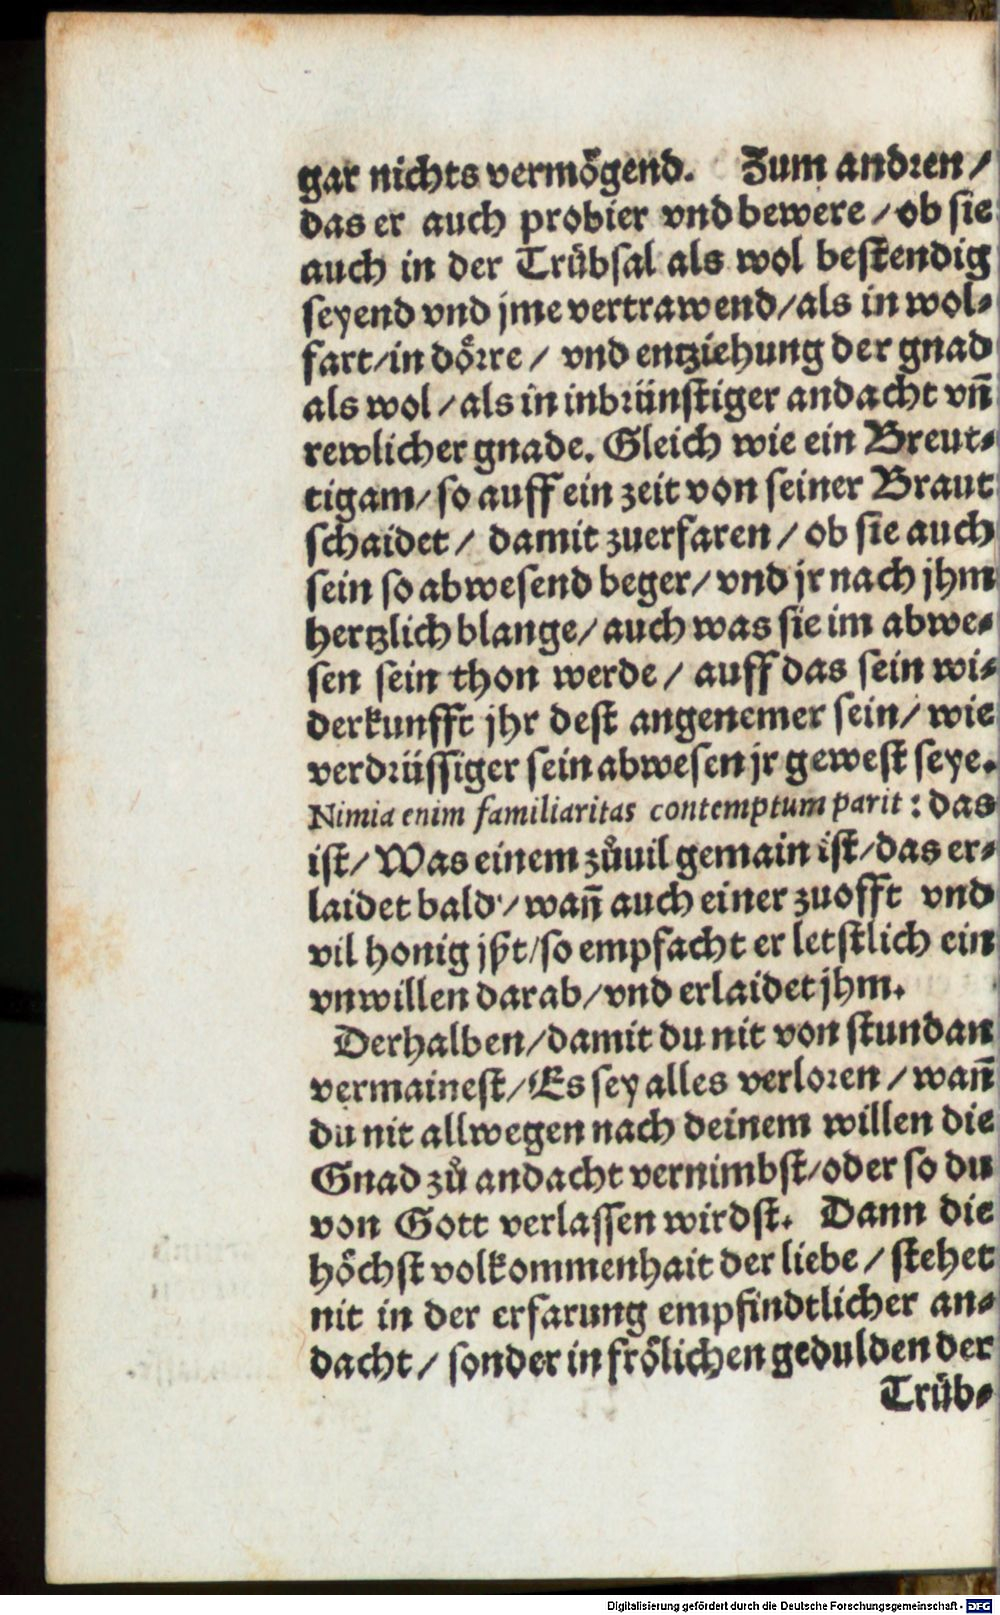 gar nichts vermögend. Zum andren /
das er auch probier vnd bewere / ob sie
auch in der Trübsal als wol bestendig
seyend vnd jme vertrawend / als in wol-
fart / in dörre / vnd entziehung der gnad
als wol / als in inbrünstiger andacht vñ
rewlicher gnade. Gleich wie ein Breut-
tigam / so auff ein zeit von seiner Braut
schaidet / damit zuerfaren / ob sie auch
sein so abwesend beger / vnd jr nach jhm
hertzlich blange / auch was sie im abwe-
sen sein thon werde / auff das sein wi-
derkunfft jhr dest angenemer sein / wie
verdrüssiger sein abwesen jr gewest seye.
Nimia enim familiaritas contemptum parit : das
ist / Was einem zůuil gemain ist / das er-
laidet bald / wañ auch einer zuofft vnd
vil honig jßt / so empfacht er letstlich ein
vnwillen darab / vnd erlaidet jhm.
Derhalben / damit du nit von stundan
vermainest / Es sey alles verloren / wañ
du nit allwegen nach deinem willen die
Gnad zů andacht vernimbst / oder so du
von Gott verlassen wirdst. Dann die
höchst volkommenhait der liebe / stehet
nit in der erfarung empfindtlicher an-
dacht / sonder in frölichen gedulden der
Trüb-
Digitalisierung gefördert durch die Deutsche Forschungsgemeinschaft - DFG